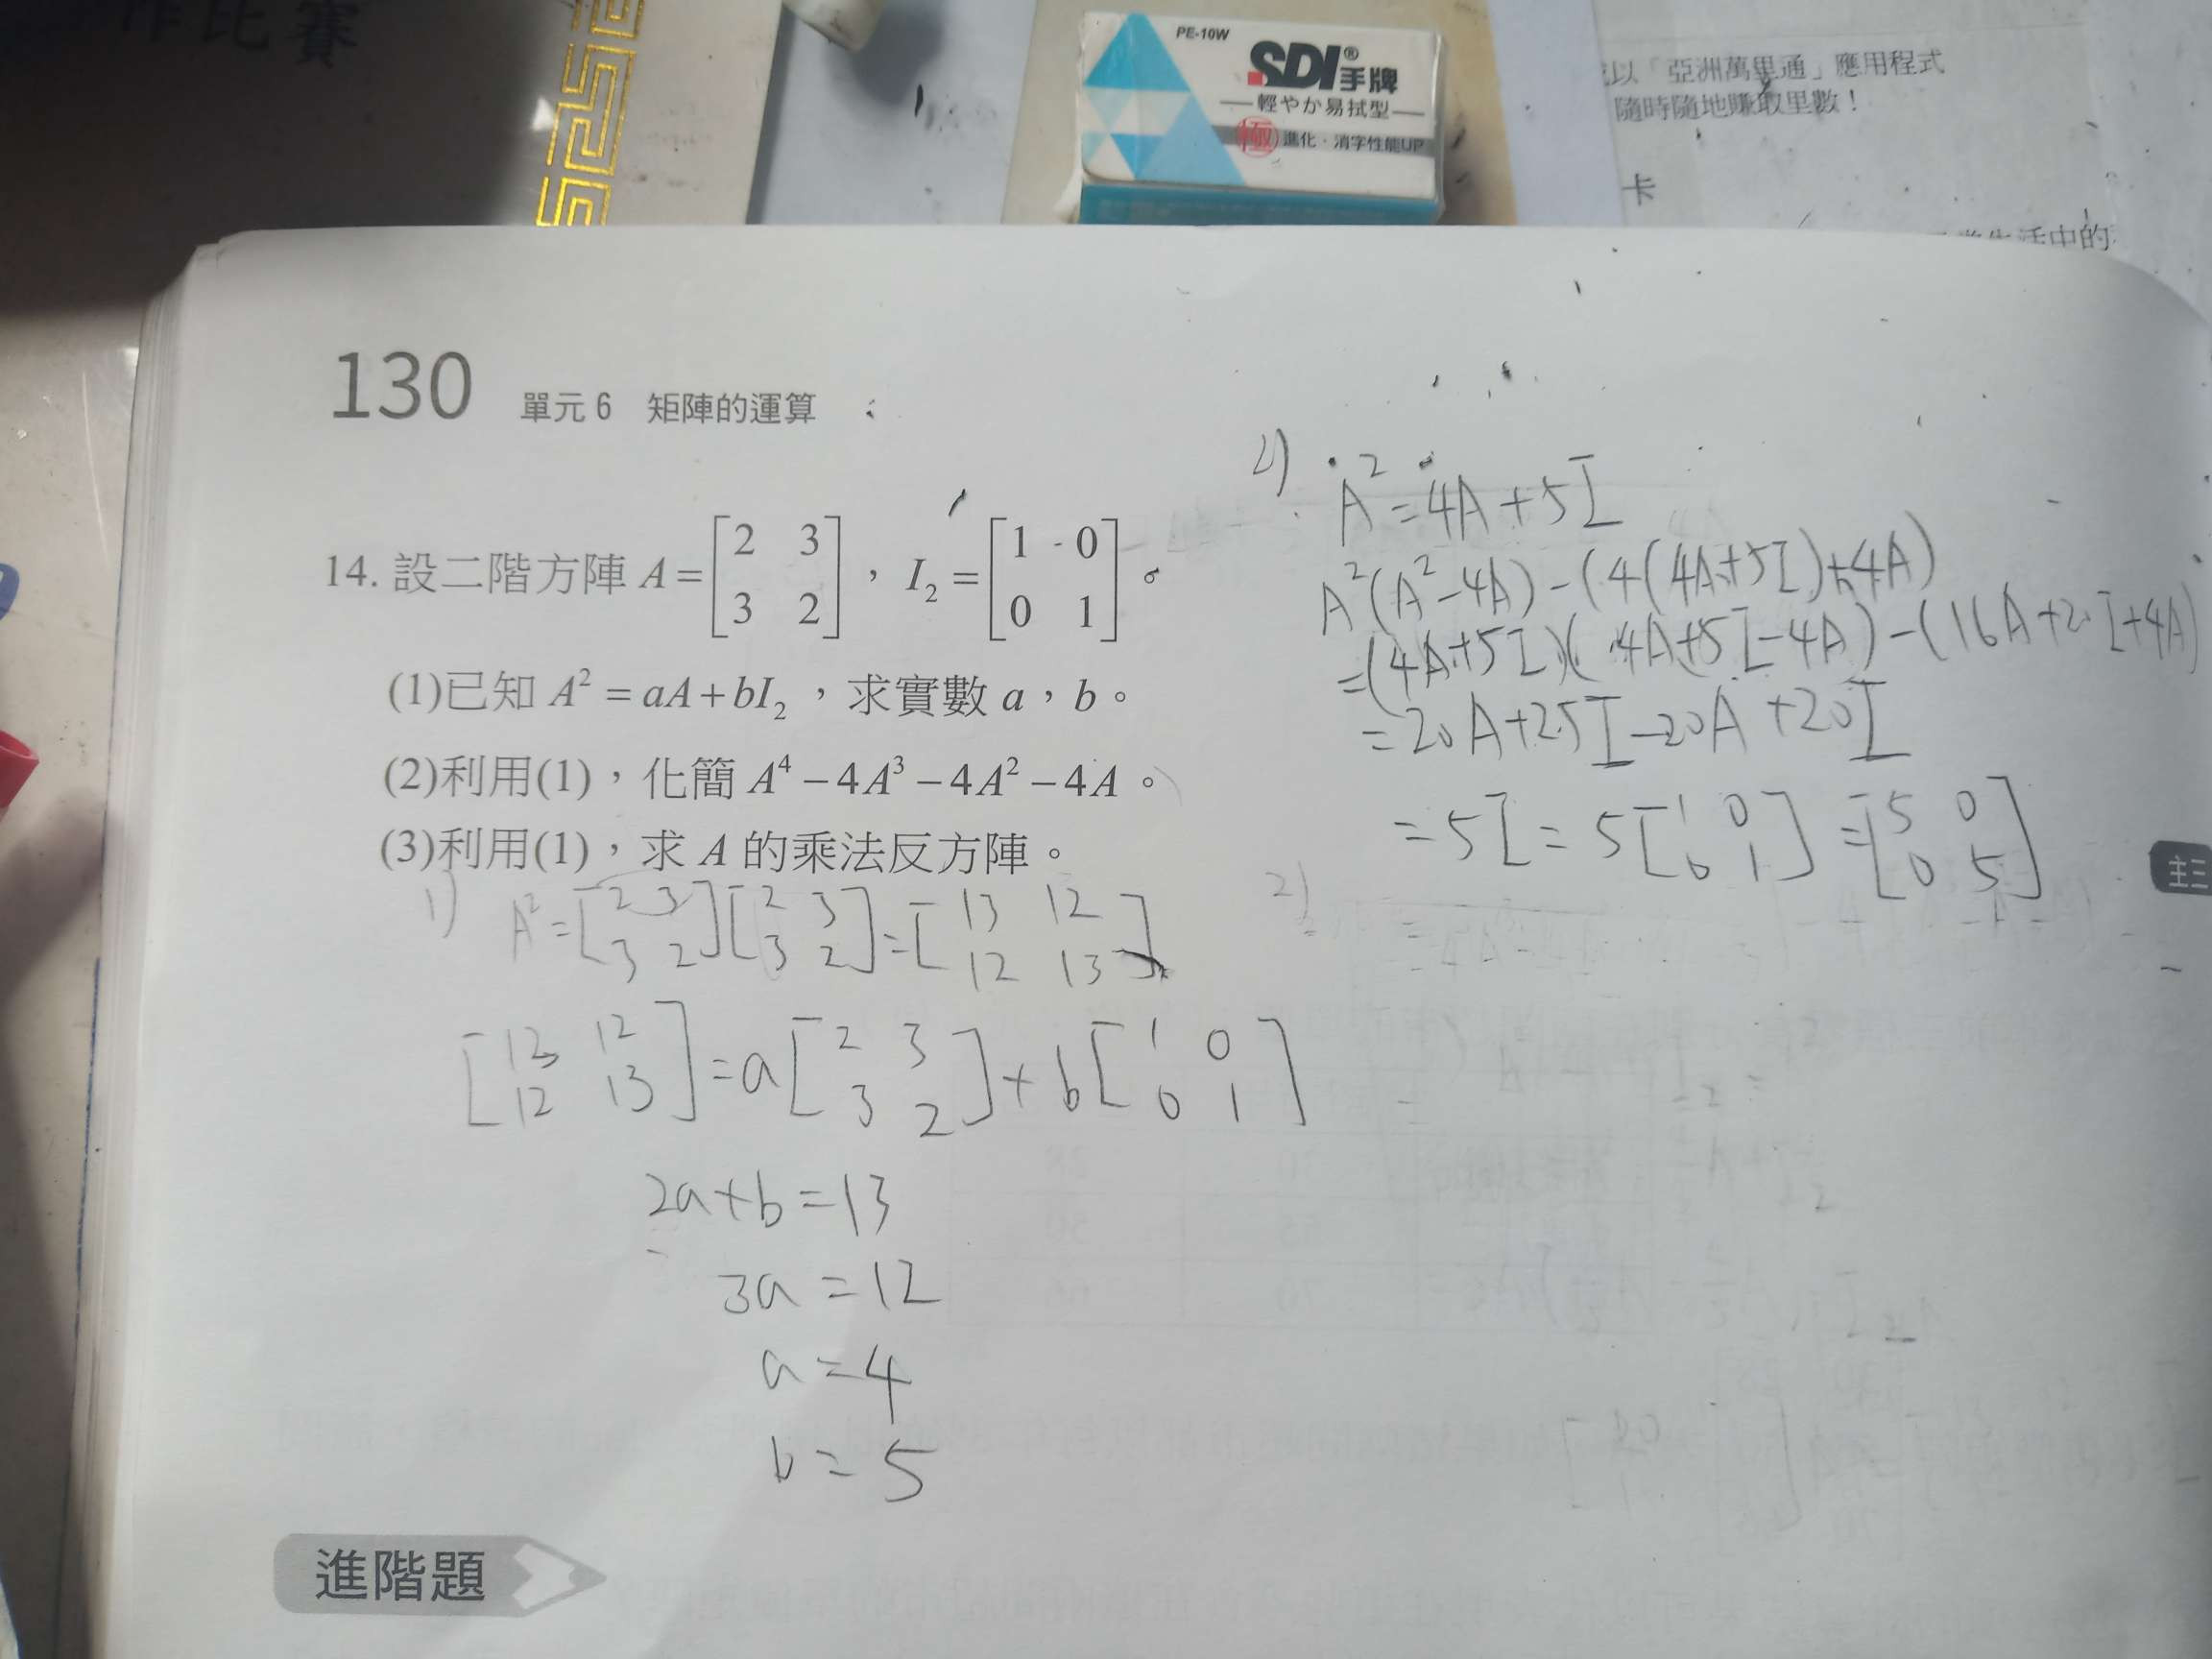 作比賽
PE-10W
SDI® 手牌
輕やか易拭型
極 進化·消字性能UP
以「亞洲萬里通」應用程式
隨時隨地賺取里數！
卡
生活中的
130 單元 6 矩陣的運算
14. 設二階方陣 A = [2 3; 3 2]，I₂ = [1 0; 0 1]。
(1)已知 A² = aA + bI₂，求實數 a，b。
(2)利用(1)，化簡 A⁴ − 4A³ − 4A² − 4A。
(3)利用(1)，求 A 的乘法反方陣。
1) A² = [2 3; 3 2][2 3; 3 2] = [13 12; 12 13]
[13 12; 12 13] = a[2 3; 3 2] + b[1 0; 0 1]
2a+b=13
3a=12
a=4
b=5
2) A² = 4A+5I
A²(A²−4A)−(4(4A+5I)+4A)
=(4A+5I)(4A+5I−4A)−(16A+20I+4A)
=20A+25I−20A+20I
=5I=5[1 0; 0 1]=[5 0; 0 5]
2)
主三
進階題